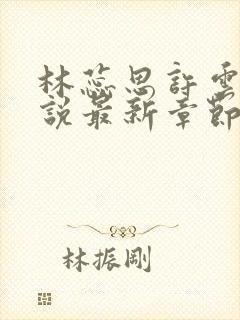 林蕊思許雲
說最新章節
林振剛